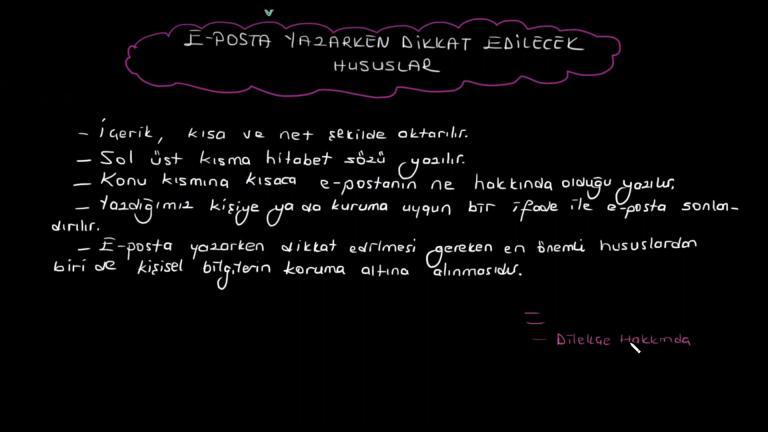 E-POSTA YAZARKEN DİKKAT EDİLECEK
HUSUSLAR
- İçerik, kısa ve net şekilde aktarılır.
- Sol üst kısma hitabet sözü yazılır.
- Konu kısmına kısaca e-postanın ne hakkında olduğu yazılır.
- Yazdığımız kişiye ya da kuruma uygun bir ifade ile e-posta sonlan-
dırılır.
- E-posta yazarken dikkat edilmesi gereken en önemli hususlardan
biri de kişisel bilgilerin koruma altına alınmasıdır.
- Dilekçe Hakkında